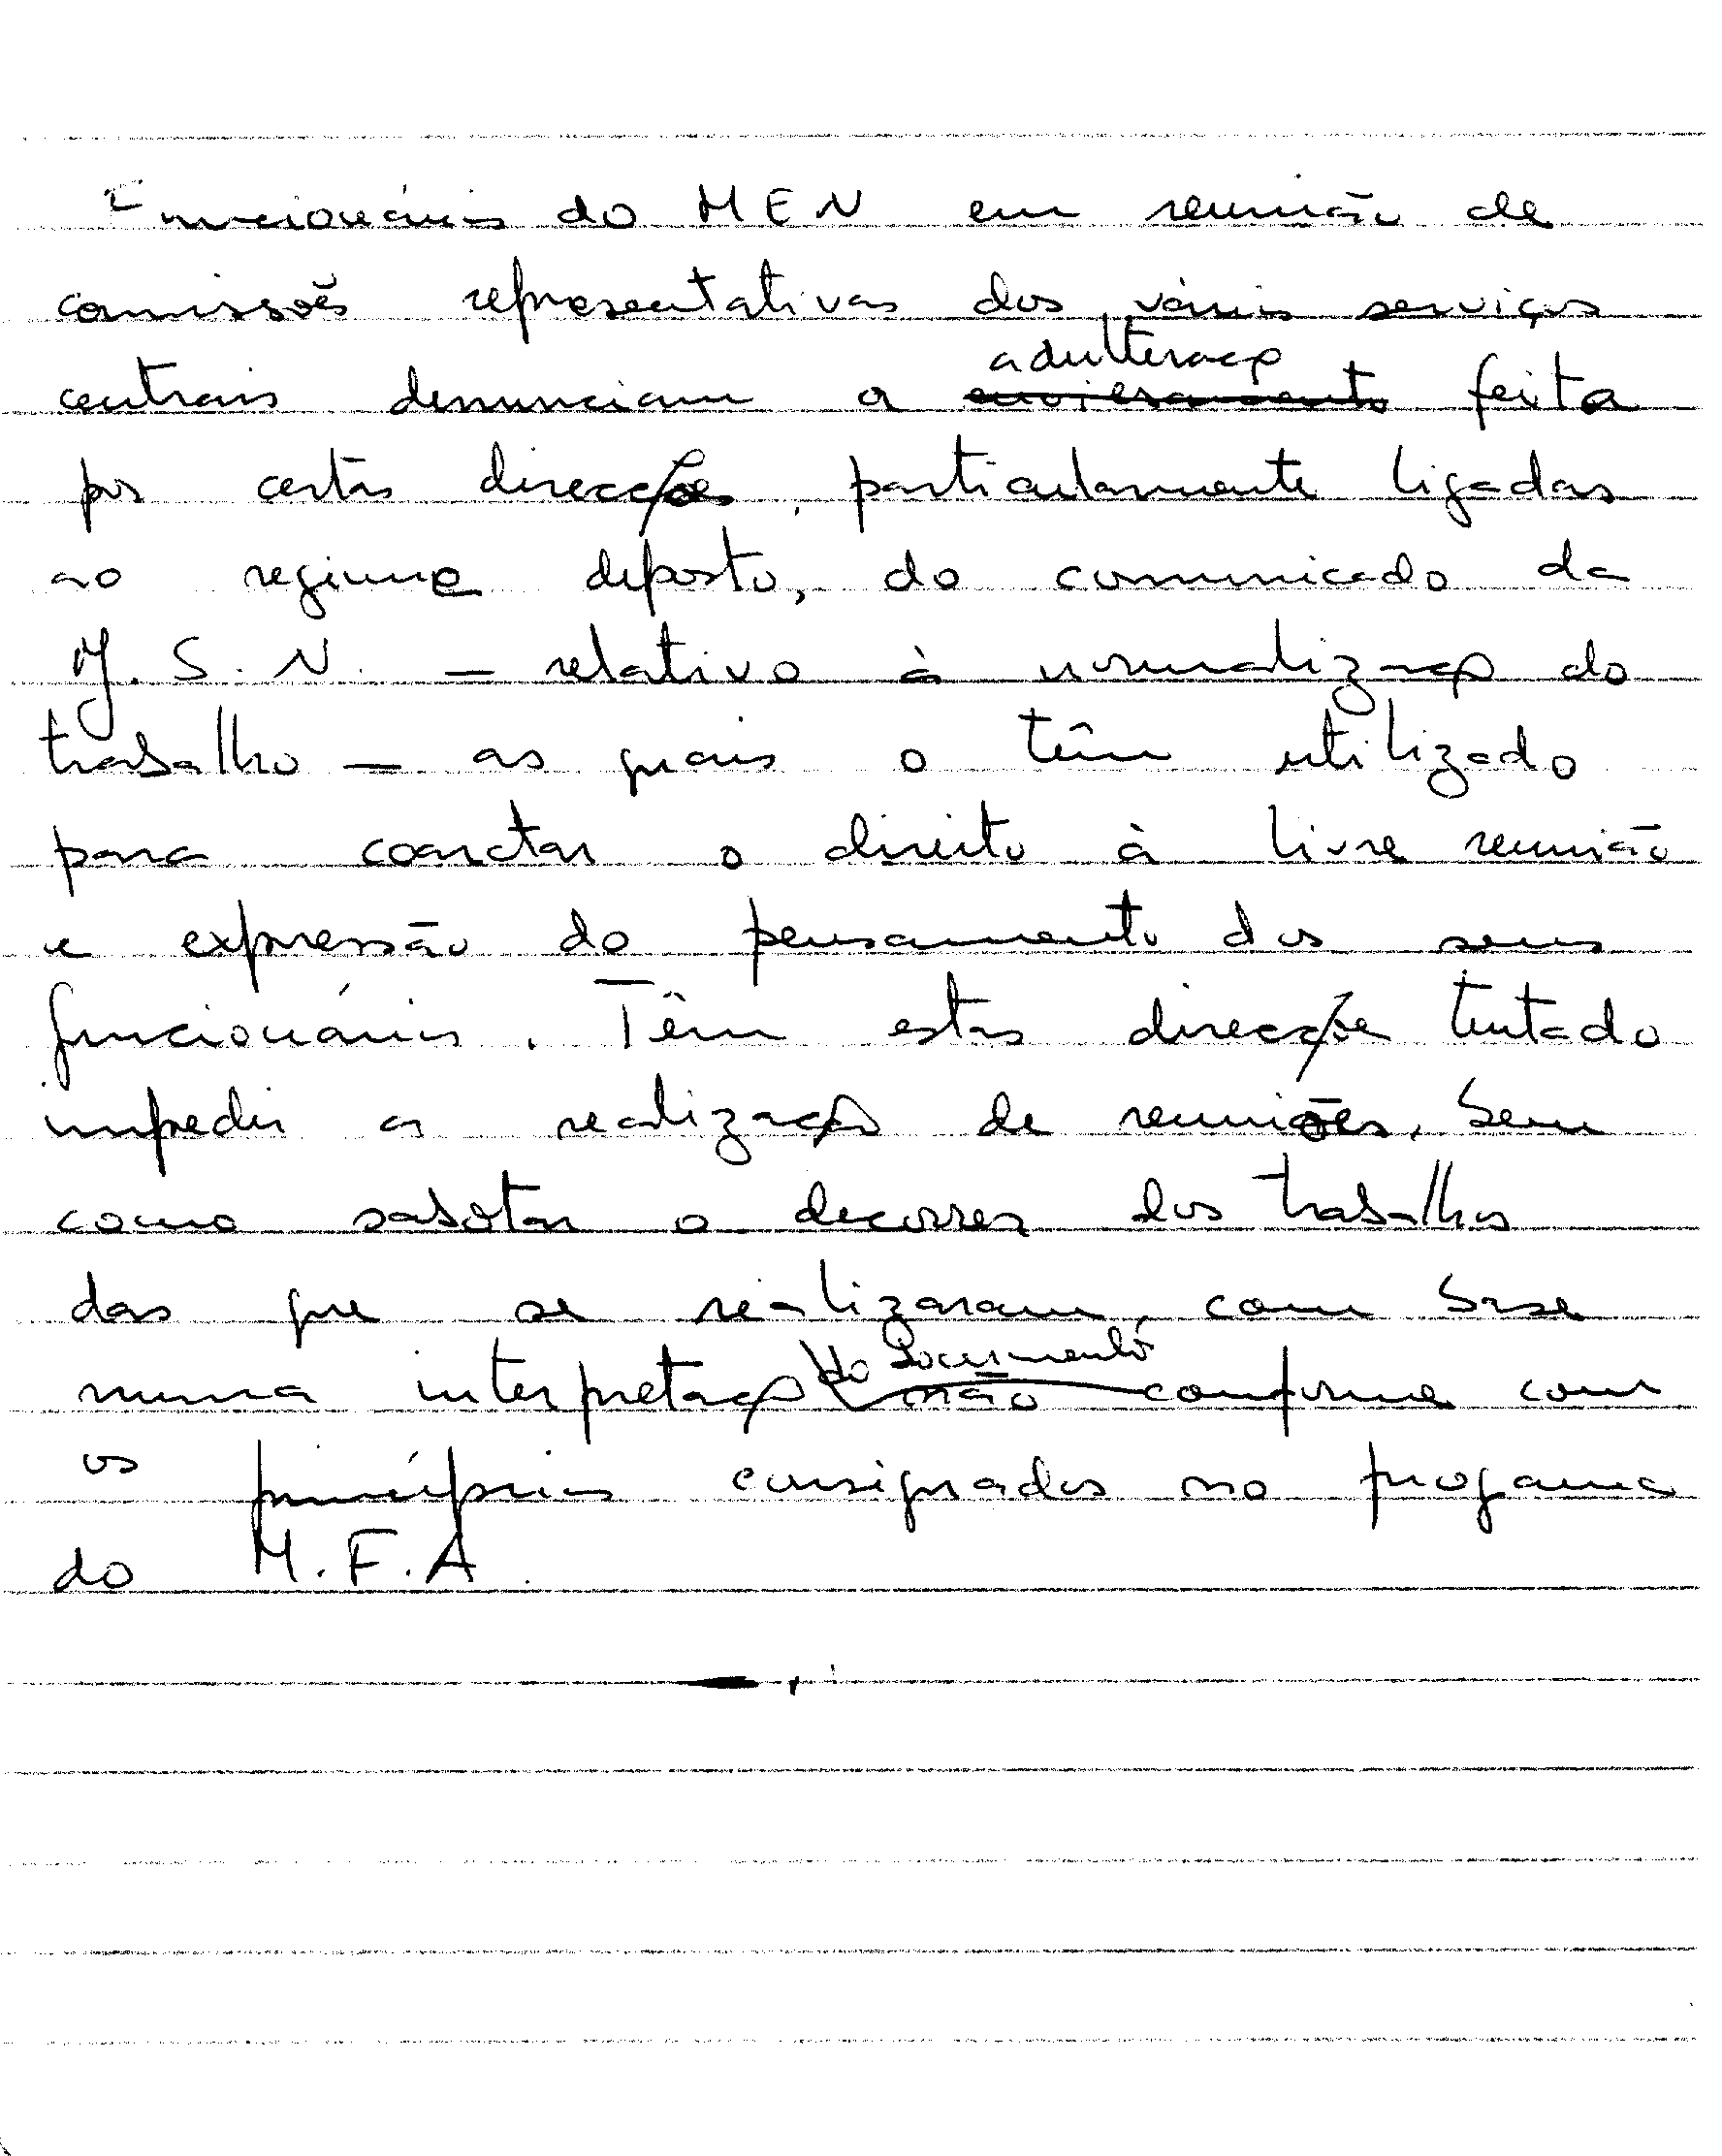 Funcionários do MEN em reunião de
comissões representativas dos vários serviços
centrais denunciam a adulteração feita
por certas direcções, particularmente ligadas
ao regime deposto, do comunicado da
J.S.N. — relativo à normalização do
trabalho — as quais o têm utilizado
para coarctar o direito à livre reunião
e expressão do pensamento dos seus
funcionários. Têm estas direcções tentado
impedir a realização de reuniões, bem
como sabotar o decorrer dos trabalhos
das que se realizaram, com base
numa interpretação do documento não conforme com
os princípios consignados no programa
do M.F.A.